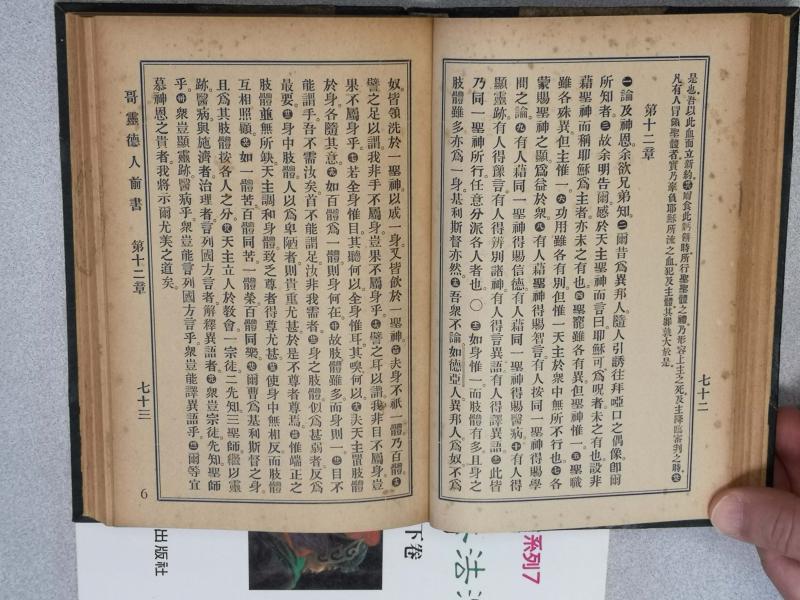 是也。吾以此血而立新約。食此餅時所行聖體之禮乃形容上主之死及主降臨審判之時。
凡有人冒領聖體者實乃辜負耶穌所流之血犯及主體其罪莫大於是。
第十二章
七十二
㊀論及神恩余欲兄弟知。㊁爾昔爲異邦人隨人引誘往拜啞口之偶像卽爾
所知者。㊂故余明告爾感於天主聖神而言曰耶穌可爲呪者未之有也設非
藉聖神而稱耶穌爲主者亦未之有也。㊃聖寵雖各有異但聖神惟一。㊄聖職
雖各殊異但主惟一。㊅功用雖各有別但惟一天主於衆中無所不行也。㊆各
蒙賜聖神之顯爲益於衆。㊇有人藉聖神得賜智言有人按同一聖神得賜學
問之論。㊈有人藉同一聖神得賜信德有人藉同一聖神得賜醫病。㊉有人得
顯靈跡有人得豫言有人得辨別諸神有人得言異語有人得譯異語。此皆
乃同一聖神所行任意分派各人者也。〇如身惟一而肢體有多且身之
肢體雖多亦爲一身基利斯督亦然。吾衆不論如德亞人異邦人爲奴不爲
奴皆領洗於一聖神以成一身又皆飲於一聖神。夫身不祇一體乃百體。
譬之足以謂我非手不屬身豈果不屬身乎。譬之耳以謂我非目不屬身豈
果不屬身乎。若全身惟目其聽何以全身惟耳其嗅何以。夫天主置肢體
於身各隨其意。如百體爲一體則身何在。故肢體雖多而身則一。目不
能謂手吾不需汝矣首不能謂足汝非我需者。身之肢體似爲甚弱者反爲
最要。身中肢體人以爲卑陋者則貴重尤甚於是不尊者尊焉。惟端正之
肢體並無所缺天主調和身體致之尊者得尊尤甚。使身中無相反而肢體
互相照顧。如一體苦百體同苦一體榮百體同樂。爾曹爲基利斯督之身
且爲其肢體按各人之分。天主立人於教會一宗徒二先知三聖師繼以靈
跡醫病與施濟者治理者言列國方言者解釋異語者。衆豈宗徒先知聖師
乎。衆豈顯靈跡醫病乎衆豈能言列國方言乎衆豈能譯異語乎。爾等宜
慕神恩之貴者我將示爾尤美之道矣。
哥靈德人前書 第十二章
七十三
6
出版社
下卷
系列7